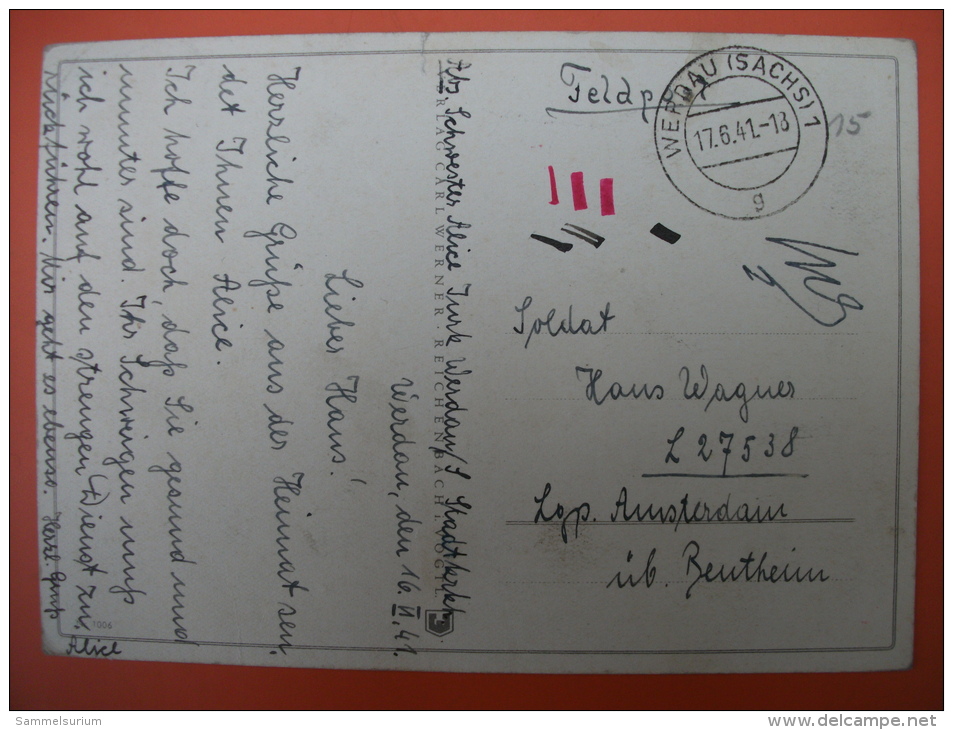 Feldp
WERDAU (SACHS) 1
17.6.41.-18
a
15
Soldat
Hans Wagner
L 27538
Lgp. Amsterdam
üb. Bentheim
Abs. Schwester Alice Turk Werdau/S Stadtkrkh.
VERLAG CARL WERNER · REICHENBACH I. VOGTL.
Werdau, den 16. VI. 41.
Lieber Hans!
Herzliche Grüße aus der Heimat sen-
det Ihnen Alice.
Ich hoffe doch, daß Sie gesund und
munter sind. Ihr Schweigen muß
ich wohl auf den strengen Dienst zu-
rückführen. Mir geht es ebenso. Herzl. Gruß
Alice
1006
Sammelsurium
www.delcampe.net